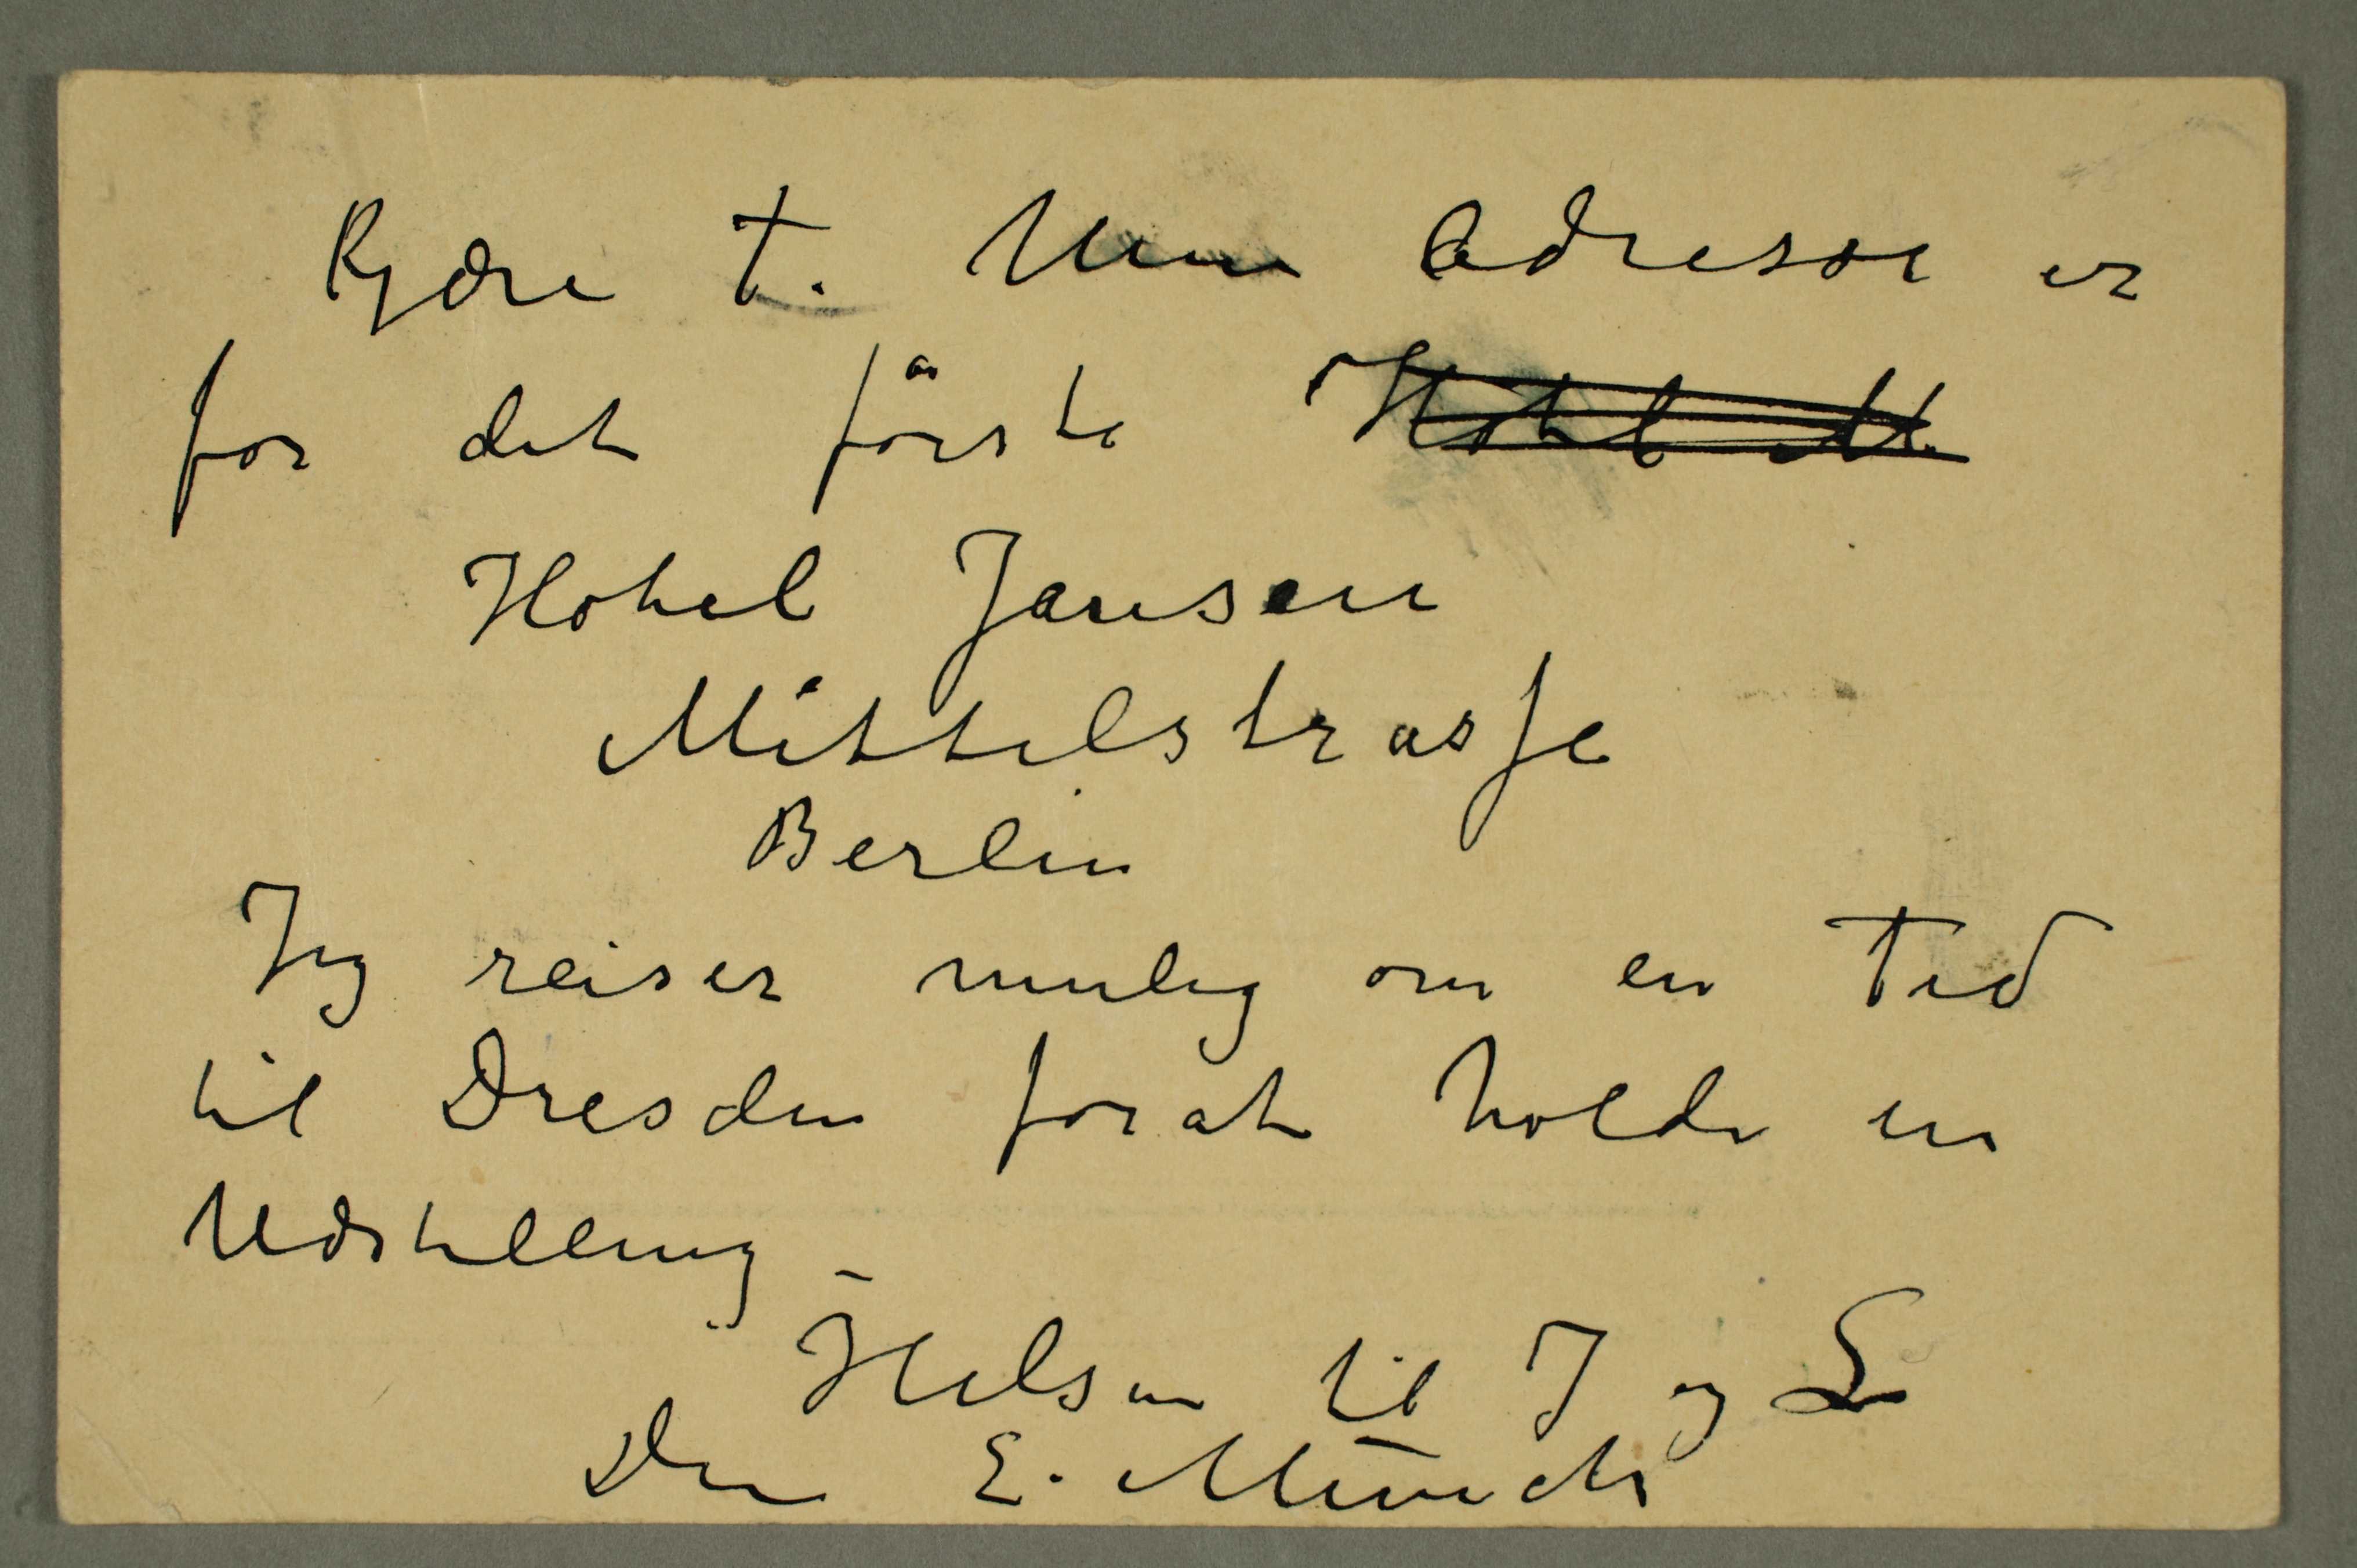 Kjære T. Min Adresse er
for det förste ~~Hotel M~~
Hotel Jansen
Mittelstrasse
Berlin
Jeg reiser mulig om en Tid
til Dresden forat holde en
Udstilling –
Hilsen til I og L
Din E. Munch